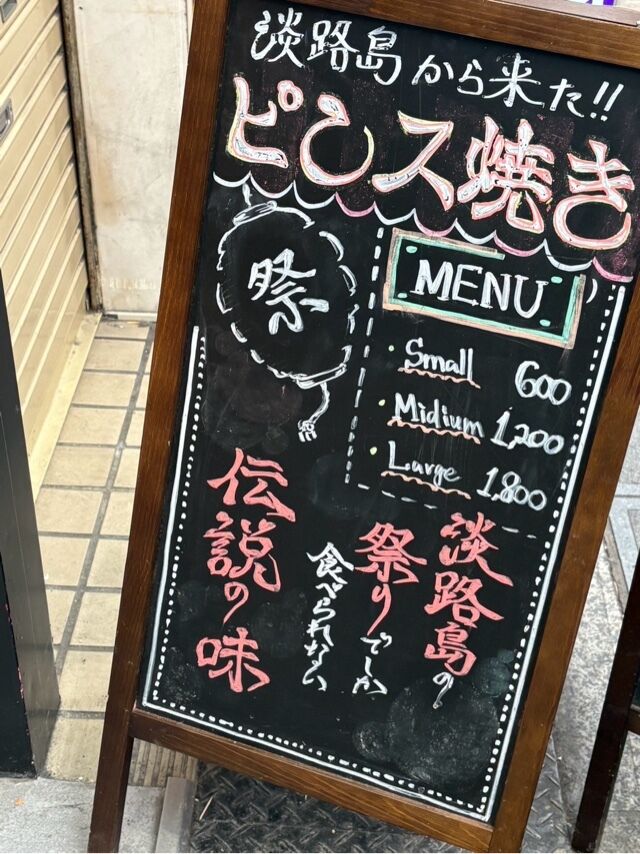 淡路島から来た!!
ピンス焼き
祭
MENU
Small 600
Midium 1,200
Large 1,800
淡路島の
祭りでしか
食べられない
伝説の味